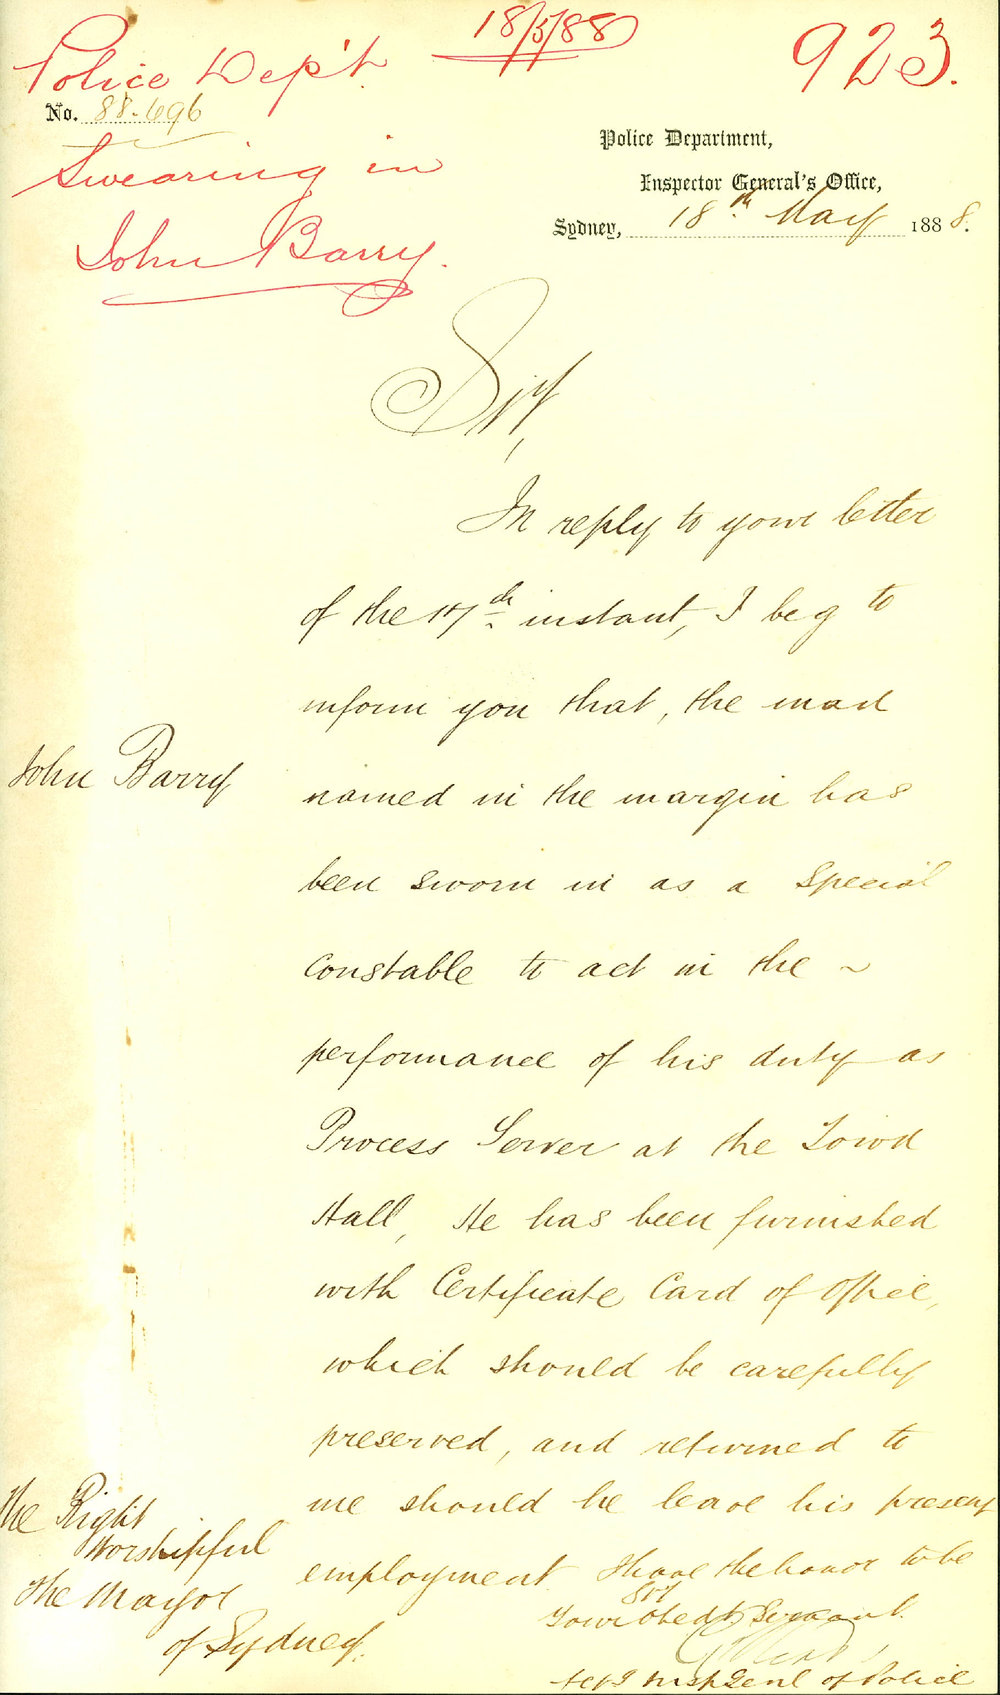 18/5/88
923.
Police Dep't.
No. 88.696
Swearing in
John Barry.
Police Department,
Inspector General's Office,
Sydney, 18th May 1888.
Sir,
In reply to your letter
of the 17th instant, I beg to
inform you that, the man
John Barry
named in the margin has
been sworn in as a Special
Constable to act in the ~
performance of his duty as
Process Server at the Town
Hall, He has been furnished
with Certificate Card of Office,
which should be carefully
preserved, and returned to
me should he leave his present
employment I have the honor to be
Sir
Your Obedt. Servant.
Insp Genl of Police
The Right
Worshipful
The Mayor
of Sydney.